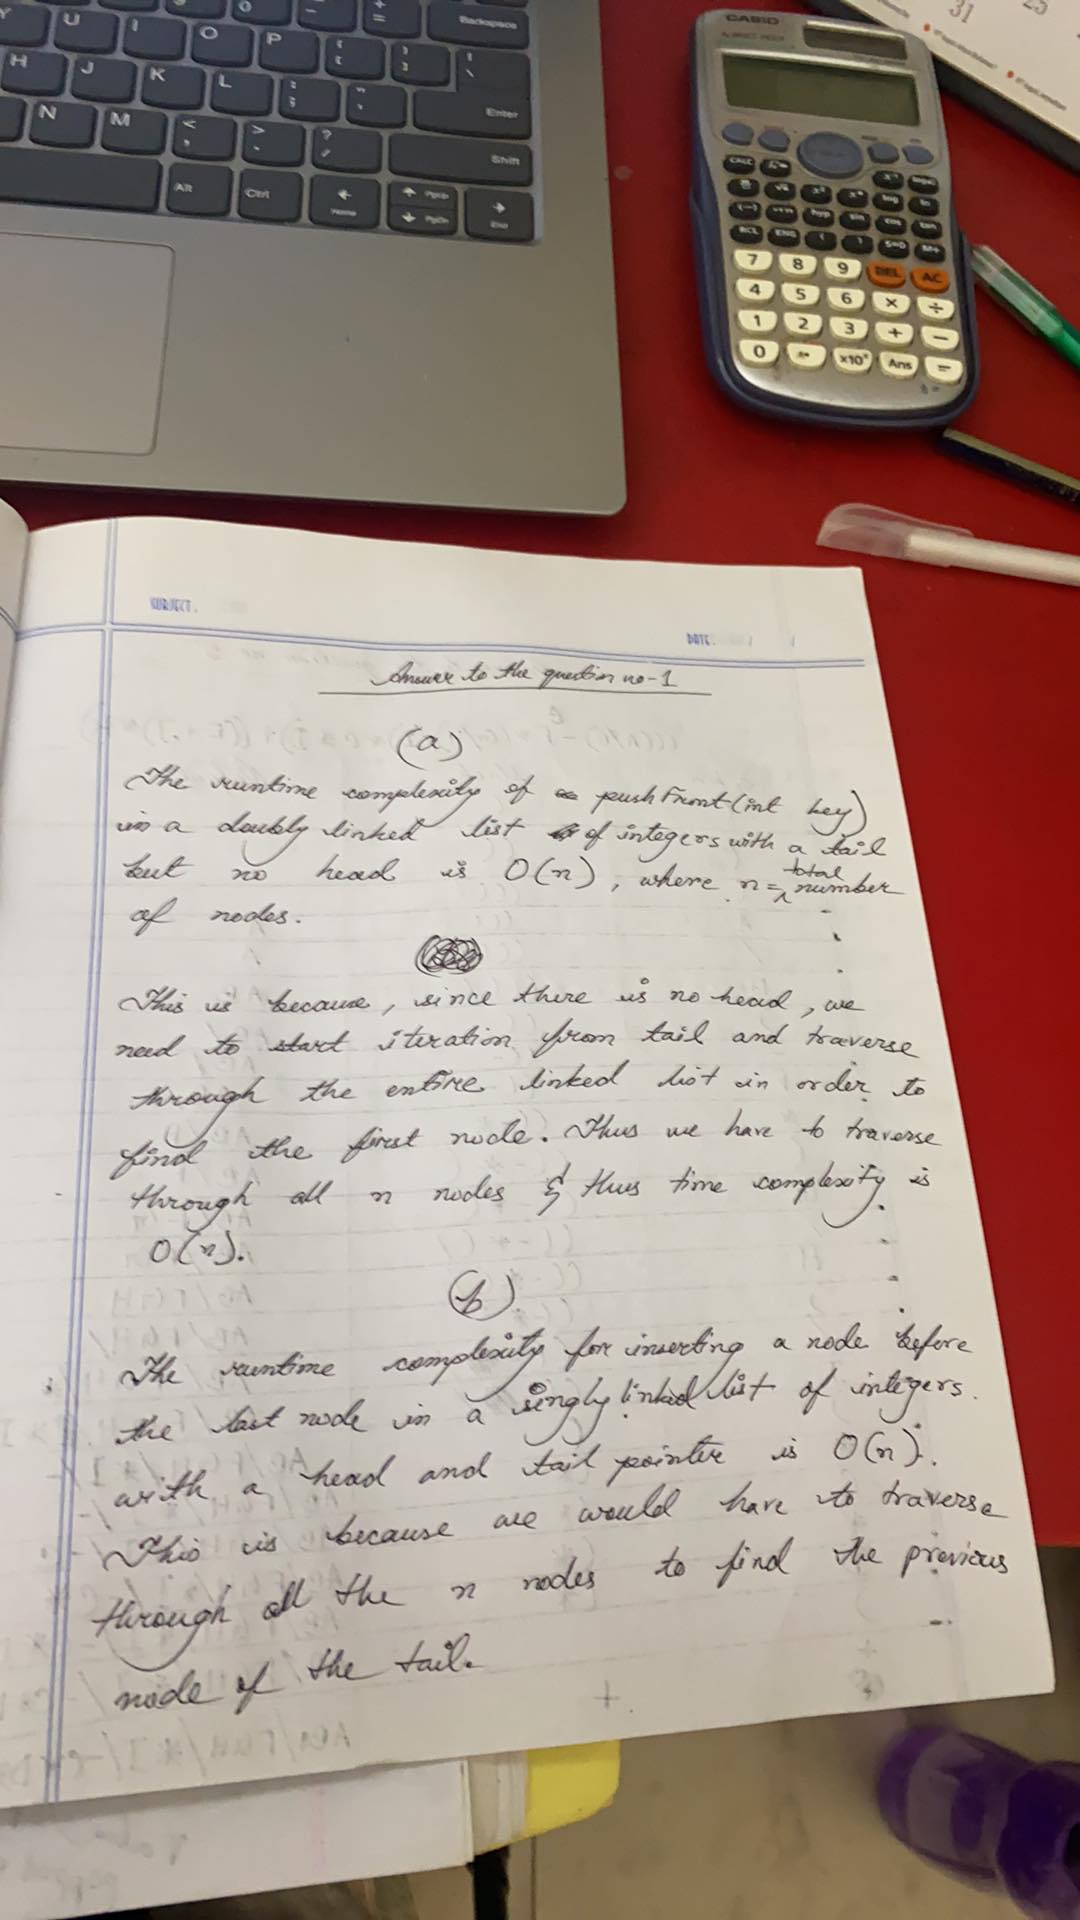 Y U I O P Backspace
H J K L Enter
N M < > ? Shift
Alt Ctrl Home PgUp PgDn End
CASIO
31 25
CALC
hyp sin cos tan
RCL ENG ( ) S⇔D M+
7 8 9 DEL AC
4 5 6 × ÷
1 2 3 + −
0 ×10ˣ Ans =
SUBJECT.
DATE. / /
Answer to the question no-1
(a)
The runtime complexity of pushFront(int key)
in a doubly linked list of integers with a tail
but no head is O(n), where n = total number
of nodes.
This is because, since there is no head, we
need to start iteration from tail and traverse
through the entire linked list in order to
find the first node. Thus we have to traverse
through all n nodes & thus time complexity is
O(n).
(b)
The runtime complexity for inserting a node before
the last node in a singly linked list of integers
with a head and tail pointer is O(n).
This is because we would have to traverse
through all the n nodes to find the previous
node of the tail.